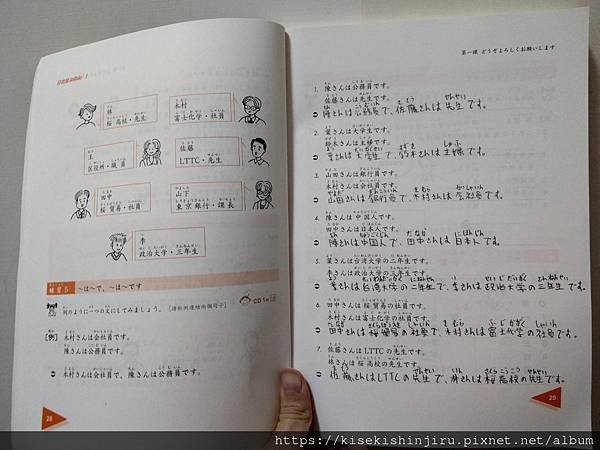 桜 高校・先生
木村
富士化学・社員
王
区役所・職員
佐藤
LTTC・先生
田中
桜 貿易・社員
山下
東京銀行・課長
李
政治大学・三年生
練習5 ～は～で、～は～です
例のように一つの文にしてみましょう。
CD1
[例] 木村さんは会社員です。
陳さんは公務員です。
木村さんは会社員で、陳さんは公務員です。
28
第一課 どうぞよろしくお願いします
1. 陳さんは公務員です。
佐藤さんは先生です。
陳さんは公務員で、佐藤さんは先生です。
2. 葉さんは大学生です。
鈴木さんは主婦です。
大学生で、鈴木さんは主婦です。
3. 山田さんは銀行員です。
木村さんは会社員です。
山田さんは銀行員で、木村さんは会社員です。
4. 陳さんは中国人です。
田中さんは日本人です。
陳さんは中国人で、田中さんは日本人です。
5. 葉さんは台湾大学の二年生です。
李さんは政治大学の三年生です。
さんは台湾大学の二年生で、李さんは政治大学の三年生です。
6. 田中さんは桜貿易の社員です。
木村さんは富士化学の社員です。
田中さんは桜貿易の社員で、木村さんは富士化学の社員です。
7. 佐藤さんは LTTC の先生です。
林さんは桜高校の先生です。
佐藤さんはLTTCの先生で、林さんは桜高校の先生です。
29
https://kisekishinjiru.pixnet.net/album